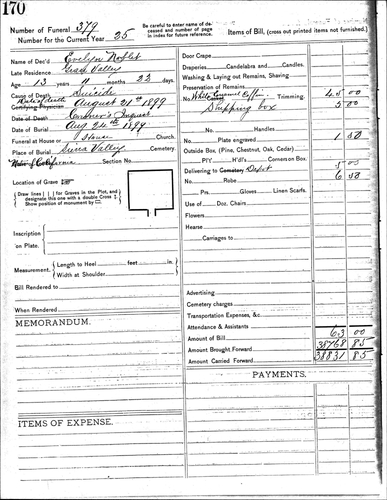 170
Number of Funeral 379
Number for the Current Year 25
Be carefully to enter name of deceased and number of page in index for future reference.
Items of Bill, (cross out printed items not furnished.)
Name of Dec'd Evelyn Noblet
Late Residence Grass Valley
Age 13 years 4 months 22 days.
Cause of Death Suicide
Date of death August 21st 1899
Certifying Physician
Date of Death Coroner's Inquest
Date of Burial Aug 24th 1899
House Church.
Place of Burial Sierra Valley Cemetery.
Native of California Section No.
Location of Grave
Draw lines [ ] for Graves in the Plot, and designate this one with a double Cross
Show position of monument by fil.
Inscription on Plate.
Measurement. Length to Heel feet in.
Width at Shoulder
Bill Rendered to
When Rendered
MEMORANDUM.
ITEMS OF EXPENSE.
Door Crape
Draperies Candelabra and Candles.
Washing & Laying out Remains, Sharing
Preservation of Remains
No. White Enamel Coffin Trimming. 45 00
Shipping box 5 00
No. Handles
Plate engraved 1 50
Outside Box, (Pine, Chestnut, Oak, Cedar)
No. PlY H'd'l's Corners on Box.
Delivering to Cemetery Depot 5 00
No. Robe 6 50
Prs Gloves Linen Scarfs.
Use of Doz. Chairs
Flowers
Hearse
Carriages to
Advertising
Cemetery charges
Transportation Expenses, &c
Attendance & Assistants
Amount of Bill 63 00
Amount Brought Forward 38768 85
Amount Carried Forward 38831 85
PAYMENTS.